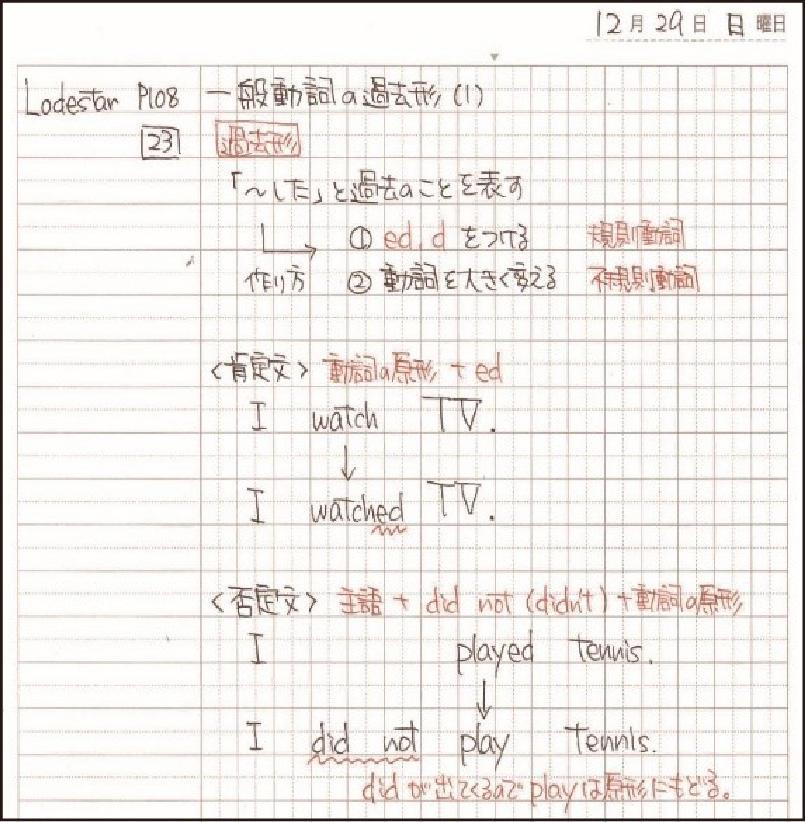 12月29日 日曜日
Lodestar P108 一般動詞の過去形(1)
23 過去形
「~した」と過去のことを表す
① ed, d をつける 規則動詞
作り方 ② 動詞を大きく変える 不規則動詞
<肯定文> 動詞の原形 + ed
I watch TV.
↓
I watched TV.
<否定文> 主語 + did not (didn't) + 動詞の原形
I played tennis.
↓
I did not play tennis.
did が出てくるので play は原形にもどる。